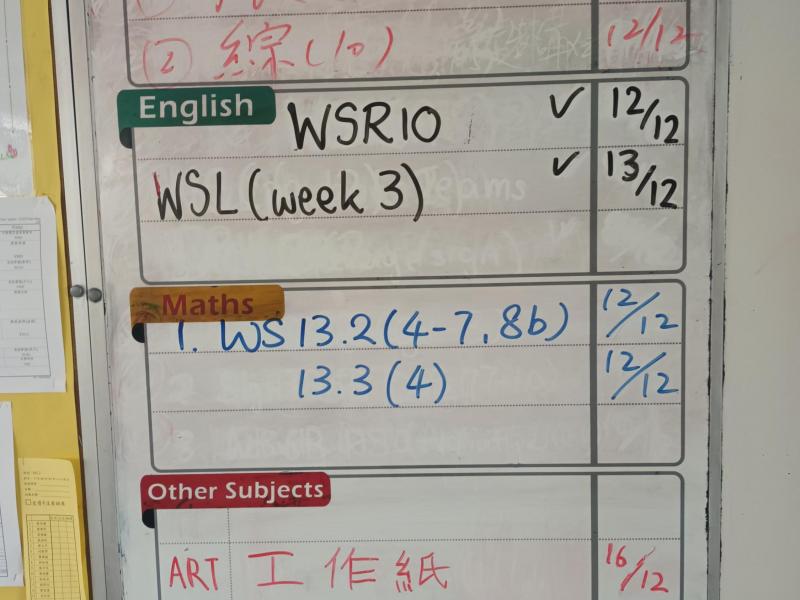 (2) 綜(10) 12/12
English
WSR10 ✓ 12/12
WSL (week 3) ✓ 13/12
Maths
1. WS 13.2 (4-7, 8b) 12/12
13.3 (4) 12/12
Other Subjects
ART 工作紙 16/12